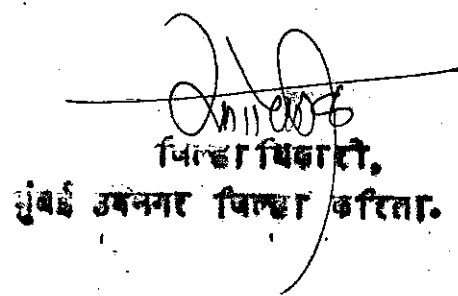 जिल्हाधिकारी,
मुंबई उपनगर जिल्हा करिता.